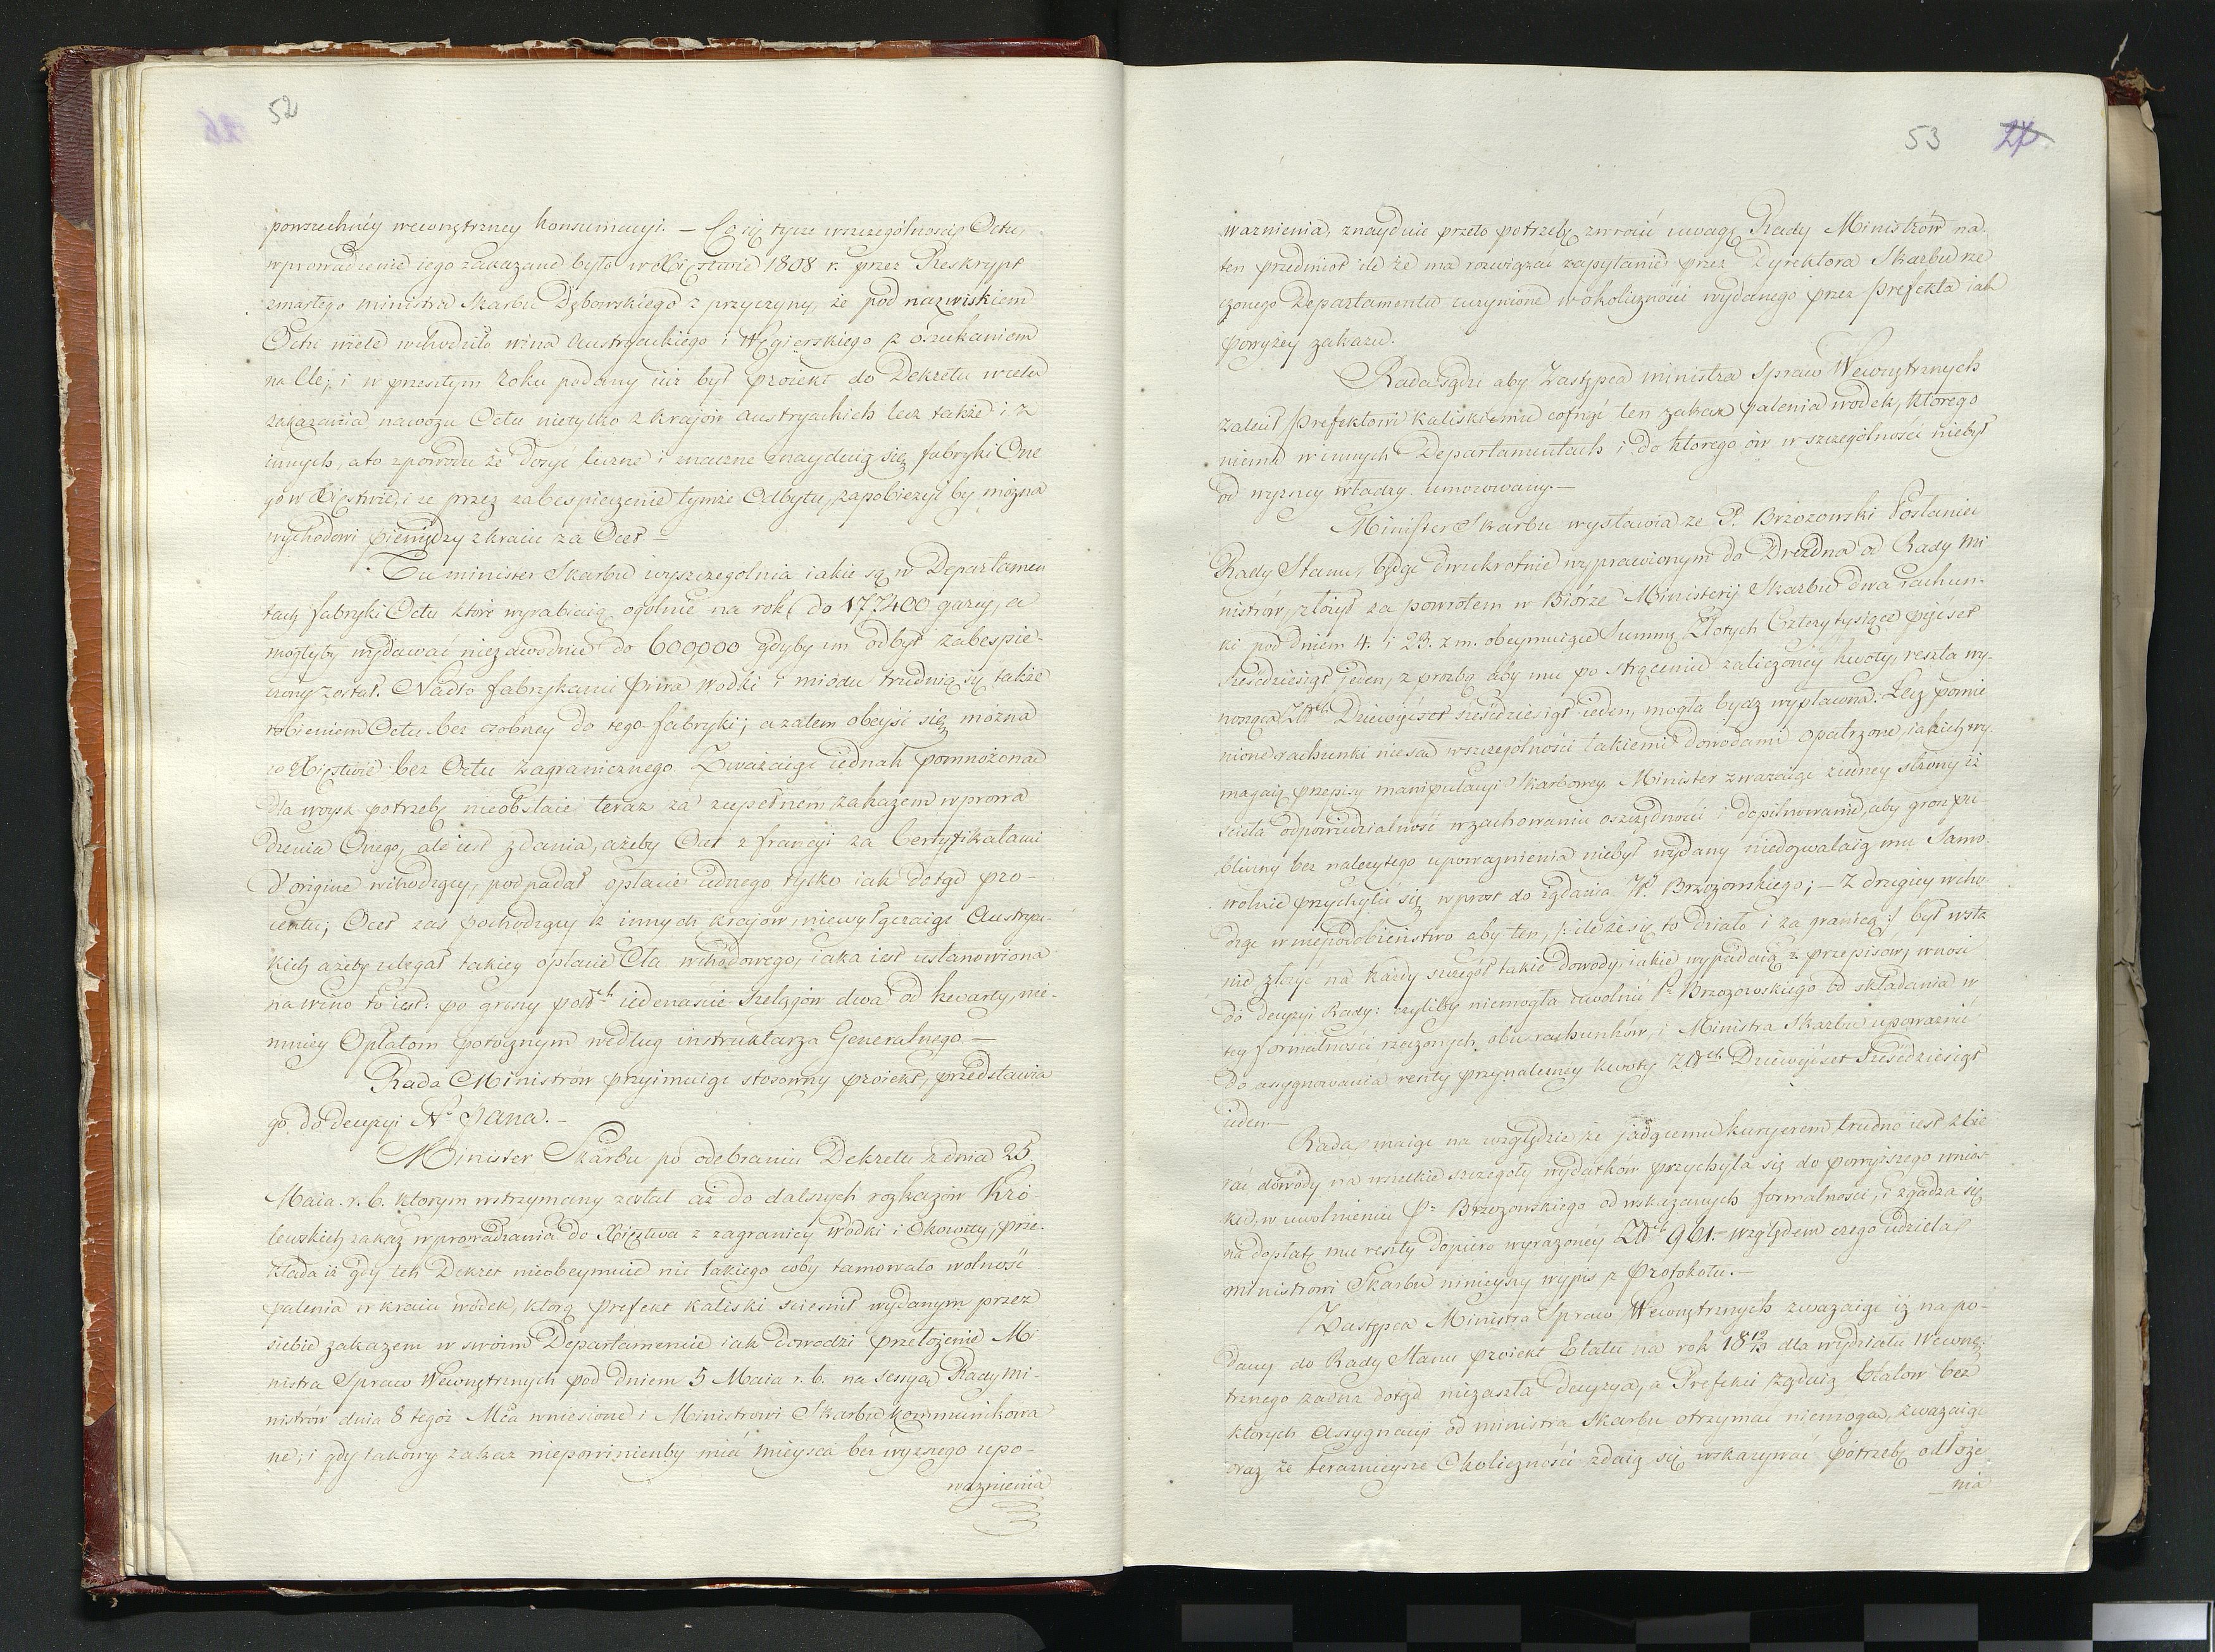 52
powszechnéy wewnętrzney konsumcyi. — Co się tycze wszczególności Octu,
wprowadzenie iego zakazane było w Xięstwie 1808 r. przez Reskrypt
zmarłego ministra Skarbu Dębowskiego z przyczyny, że pod nazwiskiem
Octu wiele wchodziło wina Austryackiego i Węgierskiego z oszukaniem
na Cle; i w przeszłym Roku podany iuż był proiekt do Dekretu wcelu
zakazania nawozu Octu nietylko z krajów Austryackich lecz także i z
innych, a to zpowodu że dosyć liczne i znaczne znayduią się fabryki One
go w Xięstwie, i że przez zabespieczenie tymże Odbytu, zapobieżyć by można
wychodowi pieniędzy zkraiu za Ocet. —
Tu minister Skarbu wyszczególnia iakie są w Departamen
tach fabryki Octu które wyrabiaią ogólnie na rok do 177400 garcy, a
mogłyby wydawać niezawodnie do 600,000 gdyby im odbyt zabespie-
czony został. Nadto fabrykanci piwa wodki i miodu trudnią się także
robieniem Octu bez osobney do tego fabryki; a zatem obeyść się można
w Xięstwie bez Octu Zagranicznego. Zważaiąc iednak pomnożone
dla woyska potrzeby nieobstaie teraz za zupełnem zakazem wprowa
dzenia Onego, ale iest zdania, ażeby Ocet z francyi za Certyfikatami
D'origine wchodzący, podpadał opłacie iednego tylko iak dotąd pro-
centu; Ocet zaś pochodzący z innych krajów, niewyłączaiąc Austryac-
kich ażeby ulegał takiey opłacie Cła wchodowego, iaka iest ustanowiona
na wino to iest: po groszy pol<sup>ch</sup> iedenascie szelągów dwa od kwarty, nie-
mniey Opłatom potocznym według instruktarza Generalnego. —
Rada Ministrów przyimuiąc stosowny proiekt, przedstawia
go do decyzyi N<sup>o</sup> Pana. —
Minister Skarbu po odebraniu Dekretu z dnia 25
Maia r. b. ktorym wstrzymany został aż do dalszych rozkazów Kró-
lewskich zakaz wprowadzania do Xięstwa z zagranicy wódki i Okowity, prze-
kłada iż gdy ten Dekret nieobeymuie nic takiego coby tamowało wolność
palenia w kraiu wódek, którą Prefekt kaliski scieśnił wydanym przez
siebie zakazem w swoim Departamencie iak dowodzi przełożenie Mi-
nistra Spraw Wewnętrznych pod dniem 5 Maia r. b. na Sessyą Rady Mi-
nistrów dnia 8 tegoż Mca wniesione i Ministrowi Skarbu kommunikowa
ne; i gdy takowy zakaz niepowinienby mieć mieysca bez wyższego upo-
ważnienia
53 27
ważnienia, znayduie przeto potrzebę zwrócić uwagę Rady Ministrów na
ten przedmiot ile że ma rozwiązać zapytanie przez Dyrektora Skarbu rze
czonego Departamentu uczynione w okoliczności wydanego przez Prefekta iak
powyżey zakazu.
Rada sądzi aby Zastępca ministra Spraw Wewnętrznych
zalecił Prefektowi kaliskiemu cofnąć ten zakaz palenia wodek, którego
niema w innych Departamentach i do ktorego ów w szczególności niebył
od wyższey władzy umocowany. —
Minister Skarbu wystawia że P. Brzozowski Posłaniec
Rady Stanu, będąc dwukrotnie wyprawionym do Drezdna od Rady Mi
nistrów, złożył za powrotem w Biórze Ministeryi Skarbu dwa rachun-
ki pod dniem 4. i 23. z m. obeymuiące Summę Złotych Cztery tysiące pięćset
sześćdziesiąt jeden, z prozbą aby mu po strąceniu zaliczonéy kwoty, reszta wy-
nosząca Zł<sup>ch</sup> Dziewięćset sześćdziesiąt ieden, mogła bydź wypłacona. Lecz pomie
nione rachunki niesą wszczególności takiemi dowodami opatrzone iakich wy-
magaią przepisy manipulacyi Skarbowey. Minister zważaiąc ziedney strony iż
ścisła odpowiedzialność wzachowaniu oszczędności i dopilnowanie, aby grosz pu
bliczny bez należytego upoważnienia niebył wydany niedozwalaią mu Samo-
wolnie przychylić się wprost do żądania P. Brzozowskiego; — Z drugiey wcho-
dząc w niepodobieństwo aby ten, /: ile że się to działo i za granicą :/ był wsta
nie złożyć na każdy szczegół takie dowody, iakie wypadaią z przepisów, wnosi
do decyzyi Rady: czyliby niemogła uwolnić P<sup>a</sup> Brzozowskiego od składania w
tey formalności rzeczonych obu rachunków, i Ministra Skarbu upoważnić
do assygnowania reszty przynależney kwoty Zł<sup>ch</sup> Dziewięćset Sześćdziesiąt
ieden. —
Rada, maiąc na względzie że jadącemu kuryerem trudno iest zbie
rać dowody na wszelkie szczegóły wydatków przychyla się do powyższego wnios-
ku, w uwolnieniu P<sup>a</sup> Brzozowskiego od wskazanych formalności, i zgadza się
na dopłatę mu reszty dopiero wyrażonéy Zł<sup>ch</sup> 961. — względem czego udziela
ministrowi Skarbu ninieyszy wypis z Protokołu. —
Zastępca Ministra Spraw Wewnętrznych zważaiąc iż na po-
dany do Rady Stanu proiekt Etatu na rok 18<sup>12</sup>/<sub>13</sub> dla wydziału Wewnę-
trznego żadna dotąd niezaszła decyzya, a Prefekci żądaią Etatów bez
których Assygnacyi od ministra Skarbu otrzymać niemogą, zważaiąc
oraz że teraznieysze Okoliczności zdaią się wskazywać potrzebę odłoże
nia